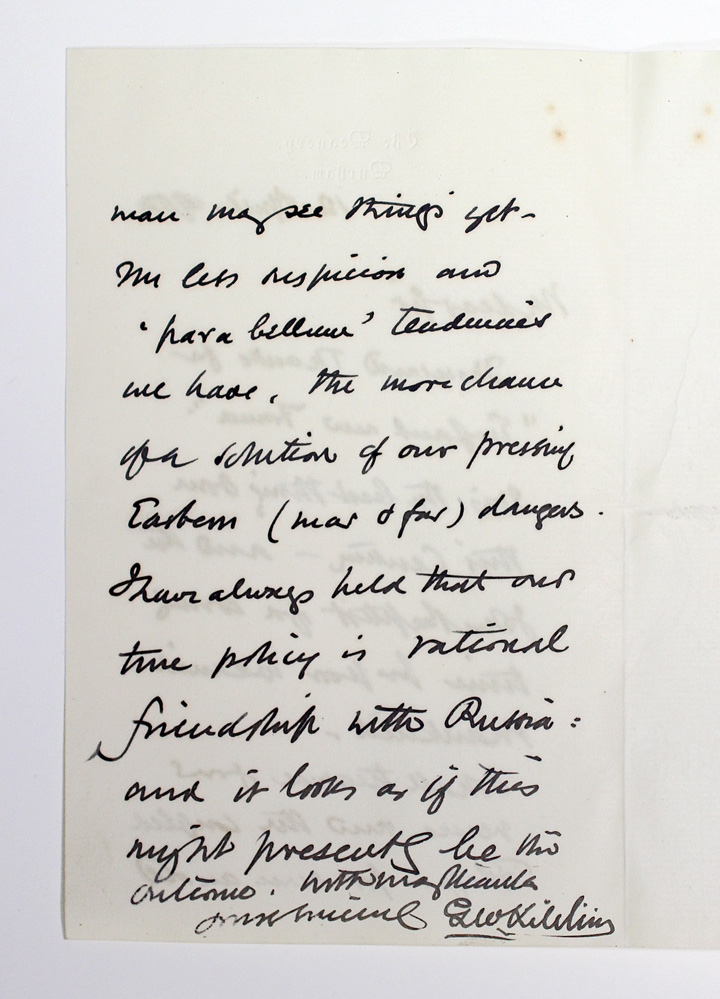 man may see things yet -
The less suspicion and
'para bellum' tendencies
we have, the more chance
of a solution of our pressing
Eastern (near & far) dangers.
I have always held that our
true policy is rational
friendship with Russia:
and it looks as if this
might presently be the
outcome. With many thanks
yours sincerely G. W. Kitchin